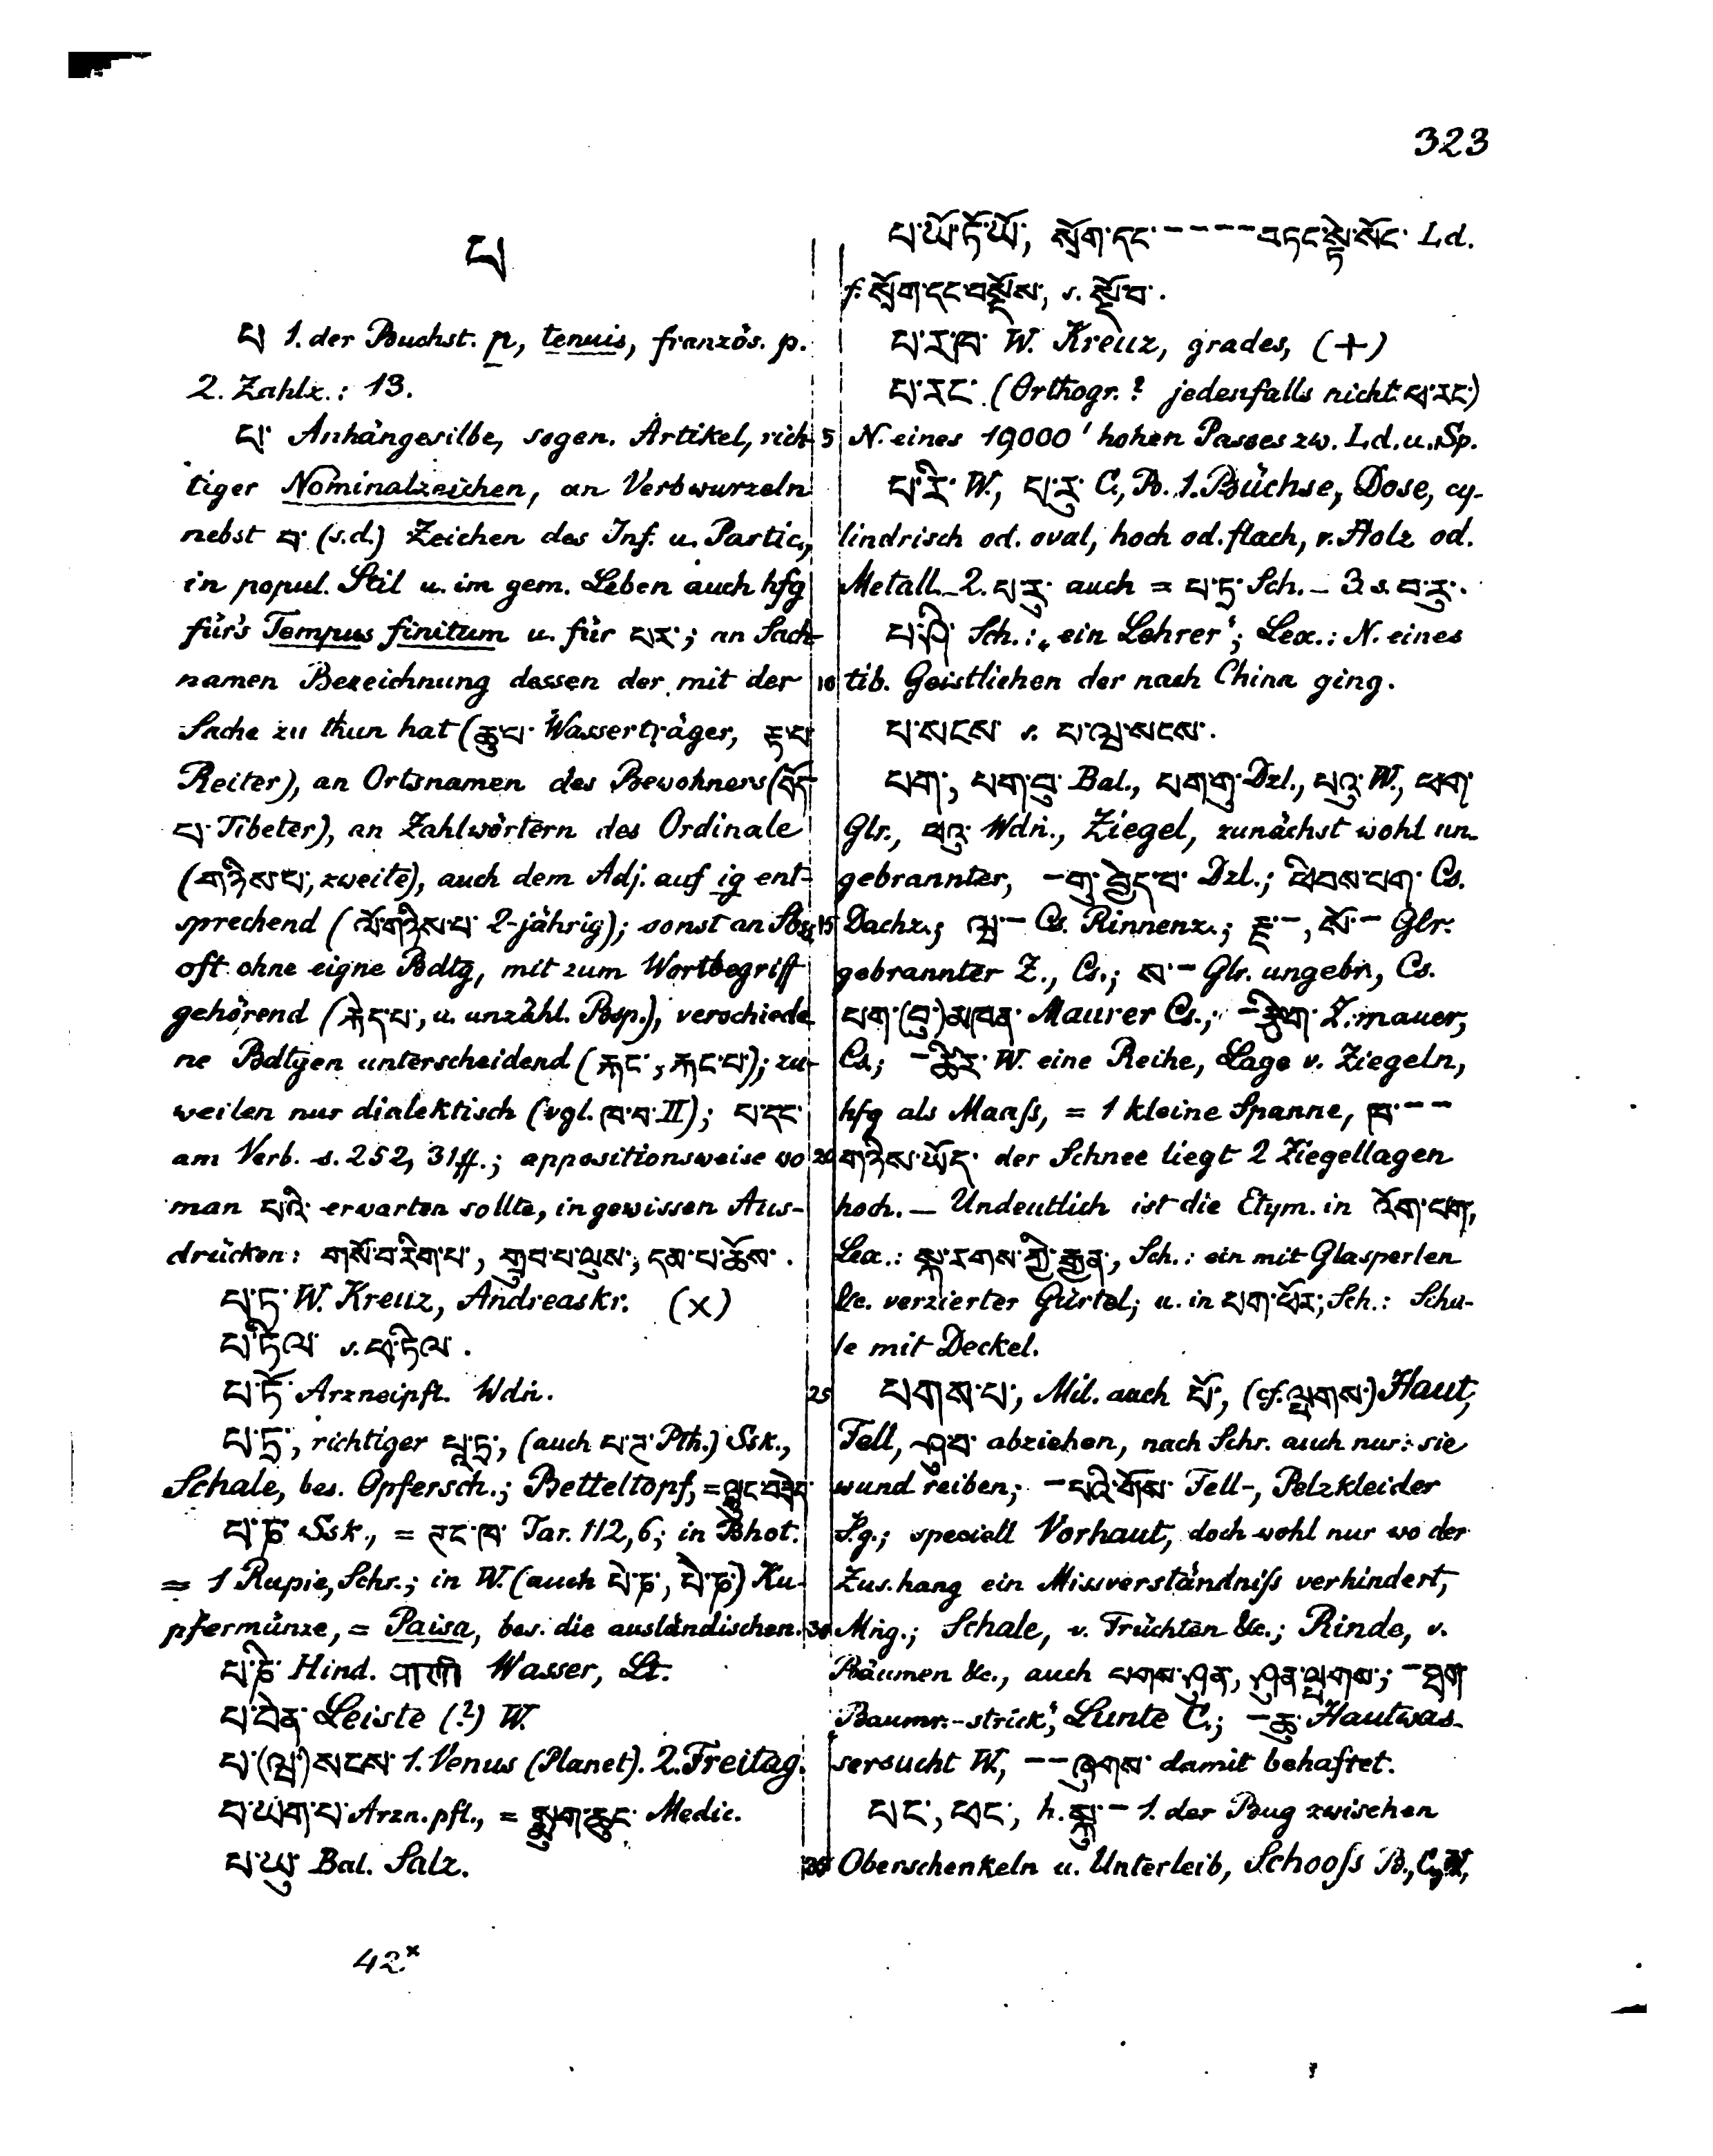 323
པ
པ 1. der Buchst. p, tenuis, französ. p.
2. Zahlz.: 13.
པ་ Anhängesilbe, sogen. Artikel, rich-
tiger Nominalzeichen, an Verbwurzeln
nebst བ་ (s.d.) Zeichen des Inf. u. Partic.,
in popul. Stil u. im gem. Leben auch hfg
für's Tempus finitum u. für པར་; an Sach-
namen Bezeichnung dessen der mit der
Sache zu thun hat (ཆུ་པ་ Wasserträger, རྟ་པ
Reiter), an Ortsnamen des Bewohners (བོད་
པ་ Tibeter), an Zahlwörtern des Ordinale
(གཉིས་པ་, zweite), auch dem Adj. auf ig ent-
sprechend (ལོ་གཉིས་པ་ 2-jährig); sonst an Sbst
oft ohne eigne Bdtg, mit zum Wortbegriff
gehörend (རྐེད་པ་, u. unzähl. Bsp.), verschiede
ne Bdtgen unterscheidend (རྐང་, རྐང་པ་); zu-
weilen nur dialektisch (vgl. ཁ་བ་ II); པ་དང་
am Verb. s. 252, 31 ff.; appositionsweise wo
man པའི་ erwarten sollte, in gewissen Aus-
drücken: གསོ་བ་རིག་པ་, གྲུབ་པ་ལུས་, དམ་པ་ཆོས་.
པ་ཏ་ W. Kreuz, Andreaskr. (x)
པ་ཏིལ་ s. ཕ་ཏིལ་.
པ་ཏོ་ Arzneipfl. Wdṅ.
པ་ཏྲ་, richtiger པཱ་ཏྲ་, (auch པ་ཊ་ Pth.) Ssk.,
Schale, bes. Opfersch.; Betteltopf, = ལྷུང་བཟེད
པ་ཎ་ Ssk., = ཊང་ཁ་ Tar. 112, 6; in Bhot.
= 1 Rupie, Schr.; in W. (auch པེ་ཎ་, པེ་ཎ་) Ku-
pfermünze, = Paisa, bes. die ausländischen.
པ་ཎི་ Hind. पानी Wasser, Lt.
པ་ཏེན་ Leiste (?) W.
པ་(ལྦ་)སངས་ 1. Venus (Planet). 2. Freitag.
པ་ཡག་པ་ Arzn.pfl., = སྨུག་ཆུང་ Medic.
པ་ཡུ་ Bal. Salz.
42*
པ་ཡོ་ཏོ་ཡོ་, སྲོག་དང་ – – – – བཏང་སྟེ་སོང་ Ld.
f. སྲོག་དང་བསྡོས་, s. སྡོ་བ་.
པ་ར་ཁ་ W. Kreuz, grades, (+)
པ་རང་ (Orthogr.? jedenfalls nicht ཕ་རང་)
5 N. eines 19000' hohen Passes zw. Ld. u. Sp.
པ་རི་ W., པ་རུ་ C., B. 1. Büchse, Dose, cy-
lindrisch od. oval, hoch od. flach, v. Holz od.
Metall. – 2. པ་རུ་ auch = པ་ཏྲ་ Sch. – 3. s. བ་རུ་.
པ་ཤི་ Sch.: „ein Lehrer“; Lex.: N. eines
10 tib. Geistlichen der nach China ging.
པ་སངས་ s. པ་ལྦ་སངས་.
པག་, པག་བུ་ Bal., པག་གུ་ Dzl., པའུ་ W., ཕག་
Glr., ཕའུ་ Wdṅ., Ziegel, zunächst wohl un-
gebrannter, –གུ་བྱེད་པ་ Dzl.; ཐིབས་པག་ Cs.
15 Dachz.; ལྦ་– Cs. Rinnenz.; རྫ་–, སོ་– Glr.
gebrannter Z., Cs.; ས་– Glr. ungebr., Cs.
པག་(བུ་)མཁན་ Maurer Cs.; –རྩིག་ Z.mauer,
Cs.; –ཚིར་ W. eine Reihe, Lage v. Ziegeln,
hfg als Maaſs, = 1 kleine Spanne, ཁ་– –
20 གཉིས་ཡོད་ der Schnee liegt 2 Ziegellagen
hoch. – Undeutlich ist die Etym. in འོག་པག་,
Lex.: སྐ་རགས་ཀྱི་རྒྱན་, Sch.: ein mit Glasperlen
&c. verzierter Gürtel; u. in པག་ཕོར་; Sch.: Scha-
le mit Deckel.
25 པགས་པ་, Mil. auch པོ་, (cf. ལྤགས་) Haut,
Fell, ཤུ་བ་ abziehen, nach Schr. auch nur: sie
wund reiben; –པའི་གོས་ Fell-, Pelzkleider
S.g.; speciell Vorhaut, doch wohl nur wo der
Zus.hang ein Missverständniſs verhindert,
30 Mng.; Schale, v. Früchten &c.; Rinde, v.
Bäumen &c., auch པགས་ཤུན་, ཤུན་ལྤགས་; –ཐག
Baumr.-strick', Lunte C.; –ཆུ་ Hautwas-
sersucht W., – –ཞུགས་ damit behaftet.
པང་, ཕང་, h. སྐུ་– 1. der Bug zwischen
35 Oberschenkeln u. Unterleib, Schooſs B., C., W.,